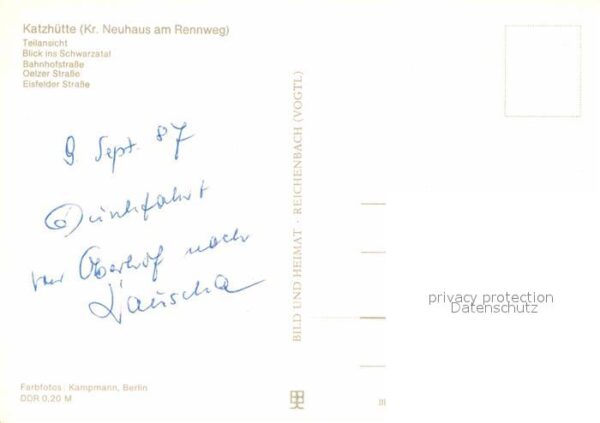 Katzhütte (Kr. Neuhaus am Rennweg)
Teilansicht
Blick ins Schwarzatal
Bahnhofstraße
Oelzer Straße
Eisfelder Straße
9 Sept. 87
Durchfahrt
von Oberhof nach
Lauscha
BILD UND HEIMAT · REICHENBACH (VOGTL)
privacy protection
Datenschutz
Farbfotos: Kampmann, Berlin
DDR 0,20 M